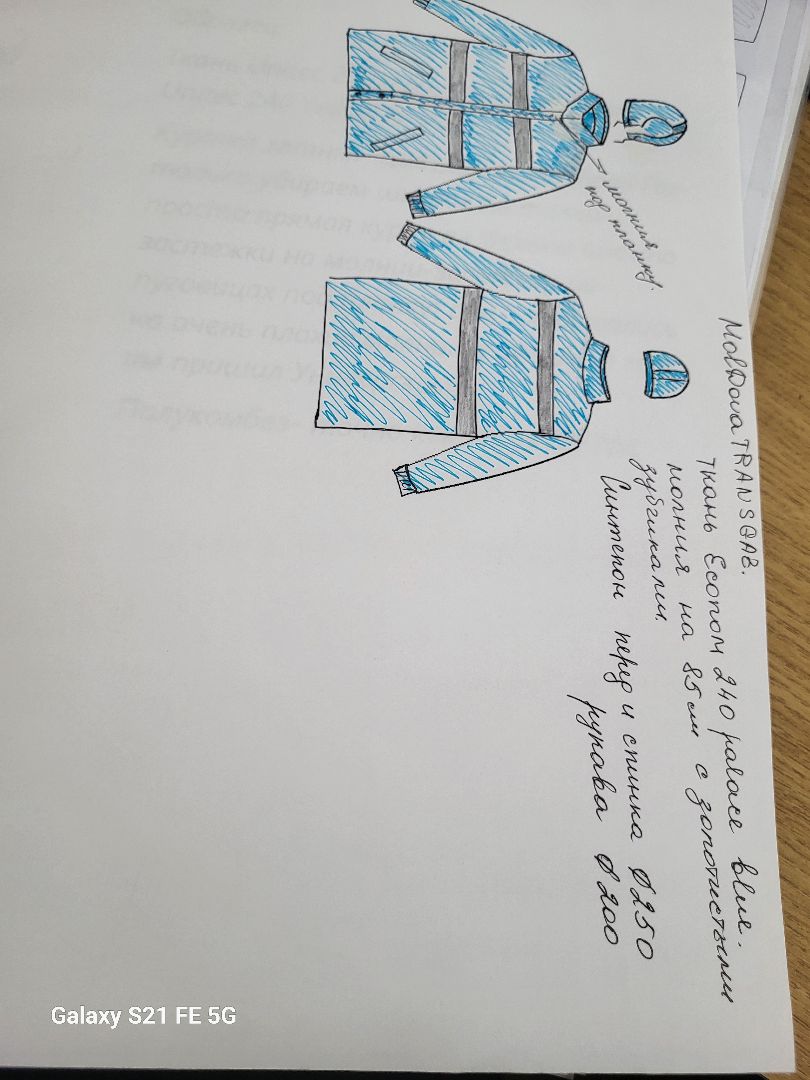 MolDovaTRANSGAZ.
ткань Econom 240 palace blue.
молния на 85 см с золотистыми
зубчиками.
Синтепон перед и спинка ∅ 250
рукава ∅ 200
молния
под планку.
Galaxy S21 FE 5G